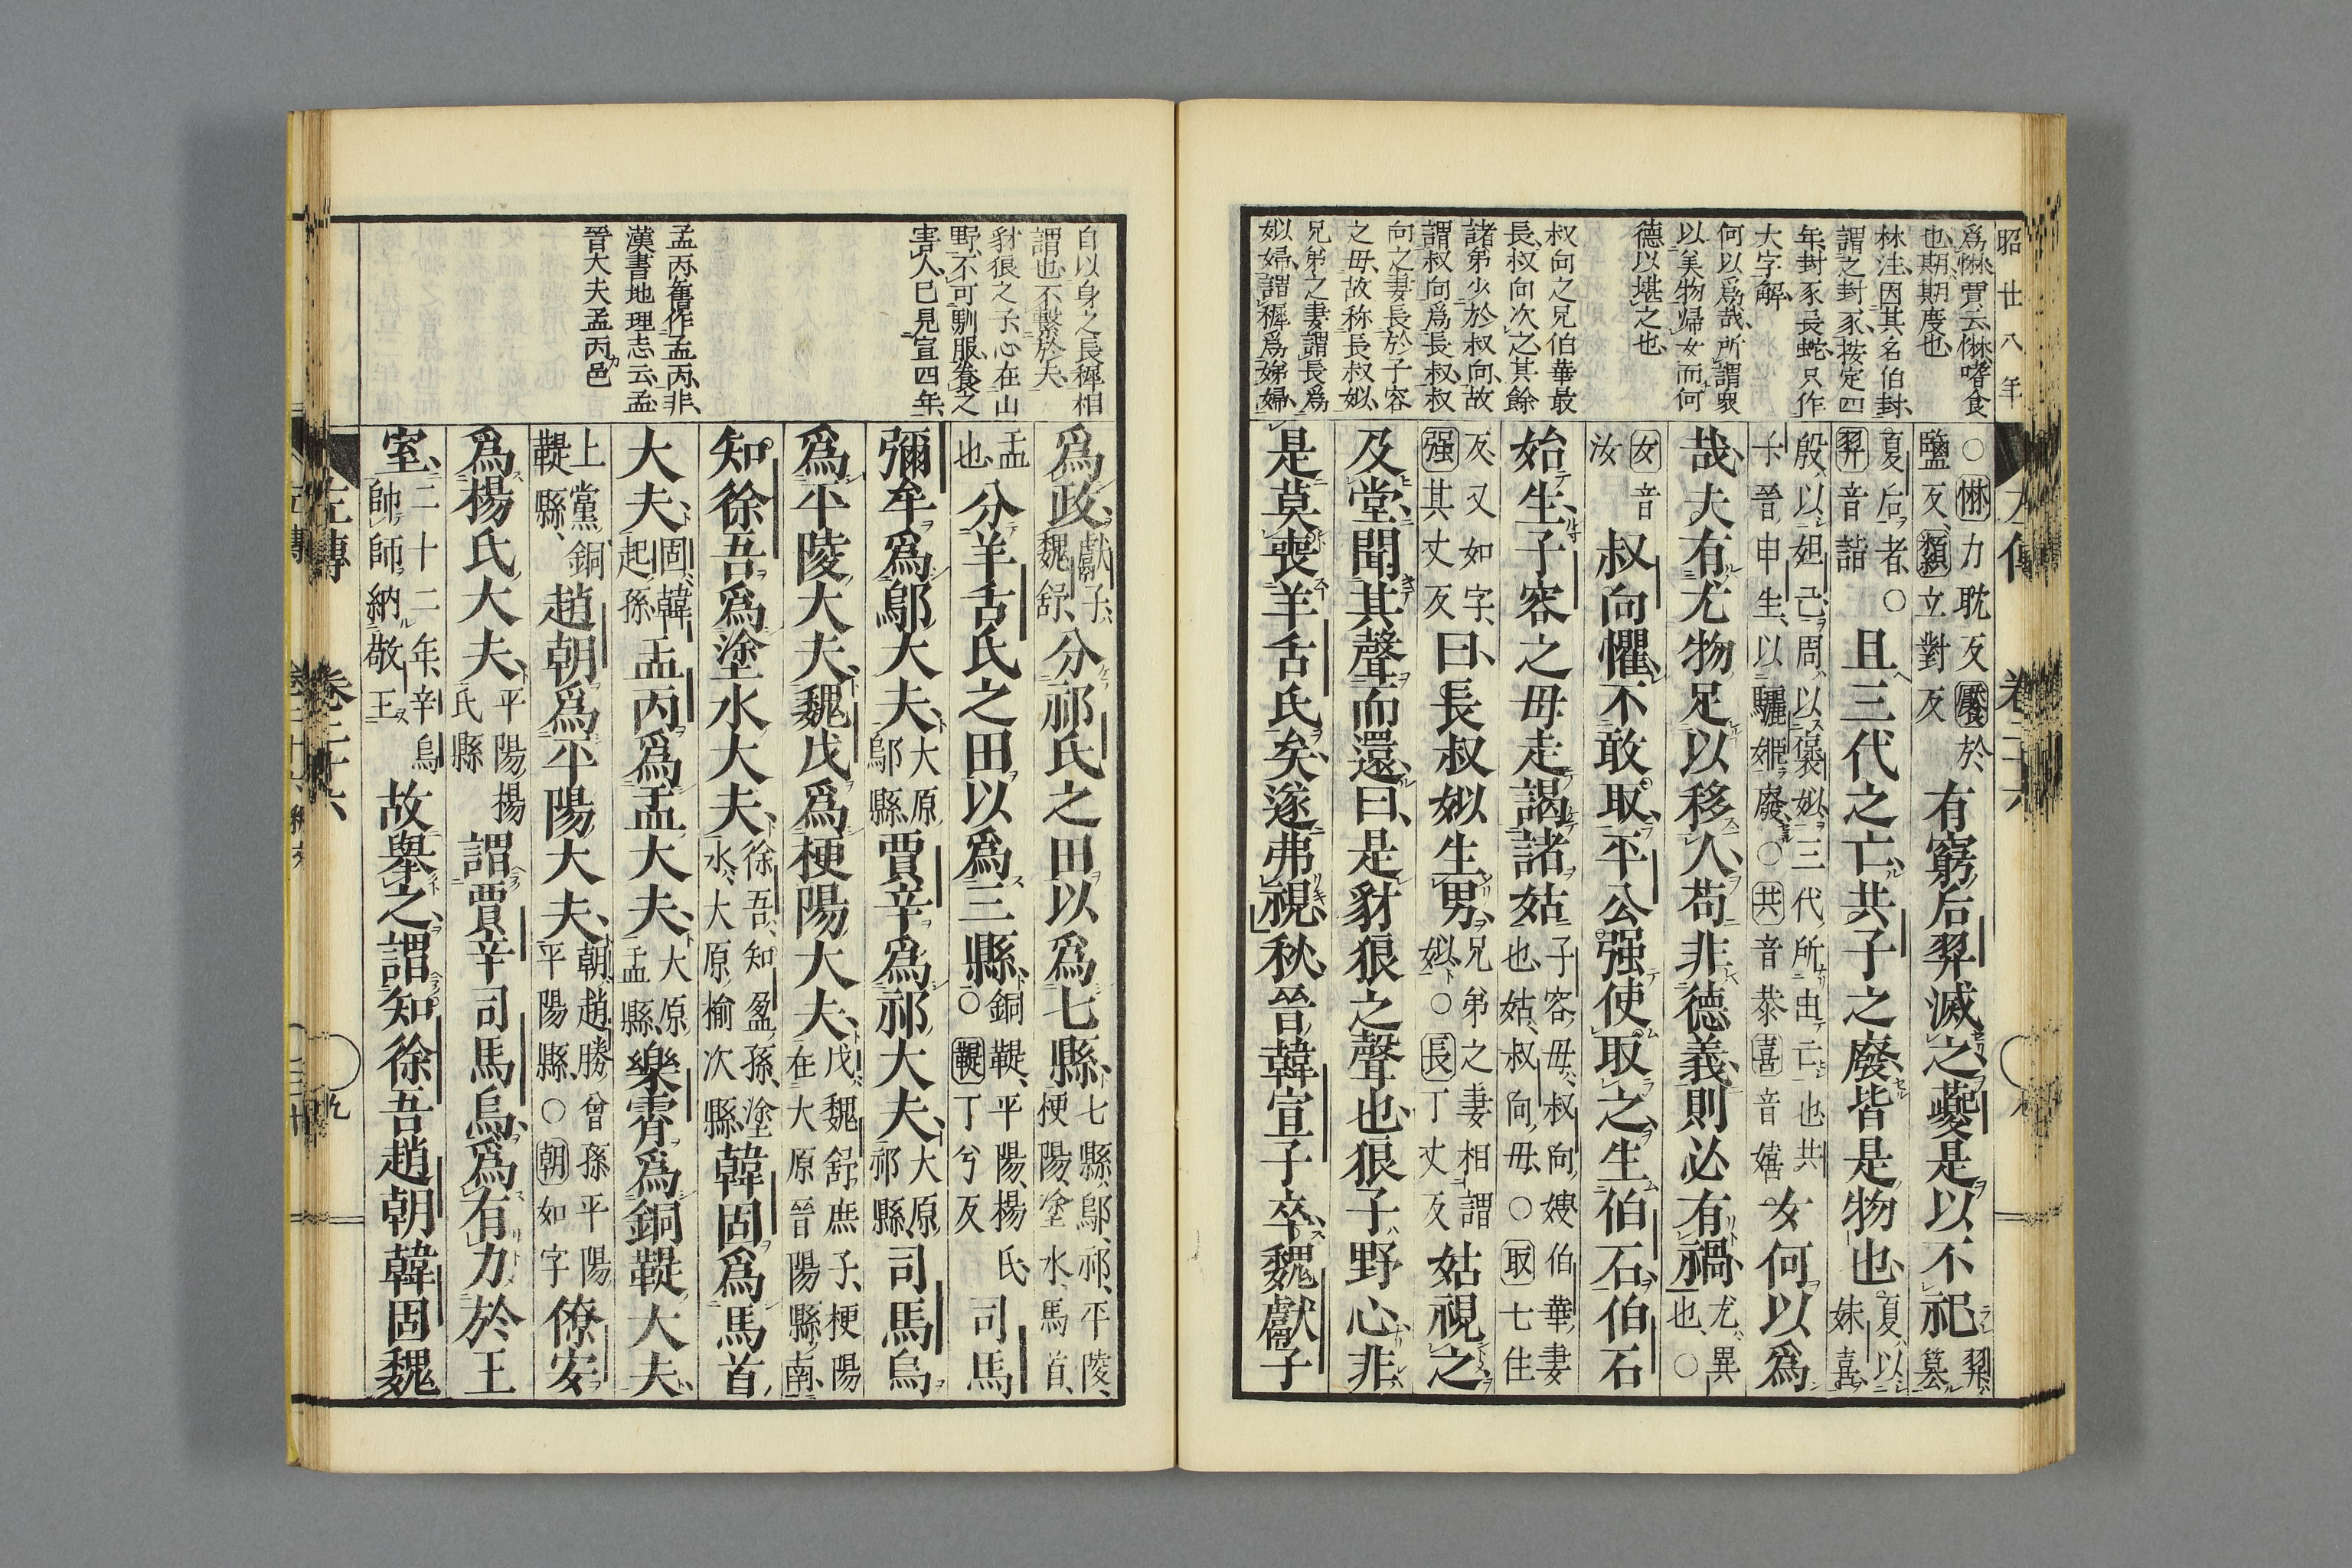 昭廿八年
爲惏賈云惏嗜食
也期期慶也
惏注因其名伯封
謂之封豕按定四
年封豕長蛇只作
大字解
何以爲哉所謂衆
以美物歸女而何
德以堪之也
叔向之兄伯華最
長叔向次之其餘
諸弟少於叔向故
謂叔向爲長叔叔
向之妻長於子容
之母故称長叔姒
兄弟之妻謂長爲
姒婦謂稺爲娣婦
○惏力耽反饜於
鹽反纇立對反
有窮后羿滅之夔是以不祀
羿簒
夏后者○
羿音詣
且三代之亡共子之廢皆是物也
夏以
妹喜
殷以妲己周以褒姒三代所由亡也共
子晉申生以驪姬廢○共音恭喜音嬉
女何以爲
哉夫有尤物足以移人苟非德義則必有禍
尤異
也○
女音
汝
叔向懼不敢取平公强使取之生伯石伯石
始生子容之母走謁諸姑
子容母叔向嫂伯華妻
也姑叔向母○取七住
反又如字
强其丈反
曰長叔姒生男
兄弟之妻相謂
姒○長丁丈反
姑視之
及堂聞其聲而還曰是豺狼之聲也狼子野心非
是莫喪羊舌氏矣遂弗視秋晉韓宣子卒魏獻子
左傳
卷二十六
自以身之長稺相
謂也不繫於夫
豺狼之子心在山
野不可馴服養之
害人已見宣四年
孟丙舊作盂丙非
漢書地理志云盂
晉大夫孟丙邑
爲政
獻子
魏舒
分祁氏之田以爲七縣
七縣鄔祁平陵
梗陽塗水馬首
盂
也
分羊舌氏之田以爲三縣
銅鞮平陽楊氏
○鞮丁兮反
司馬
彌牟爲鄔大夫
大原
鄔縣
賈辛爲祁大夫
大原
祁縣
司馬烏
爲平陵大夫魏戊爲梗陽大夫
戊魏舒庶子梗陽
在大原晉陽縣南
知徐吾爲塗水大夫
徐吾知盈孫塗
水大原榆次縣
韓固爲馬首
大夫
固韓
起孫
孟丙爲盂大夫
大原
盂縣
樂霄爲銅鞮大夫
上黨銅
鞮縣
趙朝爲平陽大夫
朝趙勝曾孫平陽
平陽縣○朝如字
僚安
爲楊氏大夫
平陽楊
氏縣
謂賈辛司馬烏爲有力於王
室
二十二年辛烏
帥師納敬王
故舉之謂知徐吾趙朝韓固魏
左傳
卷二十六